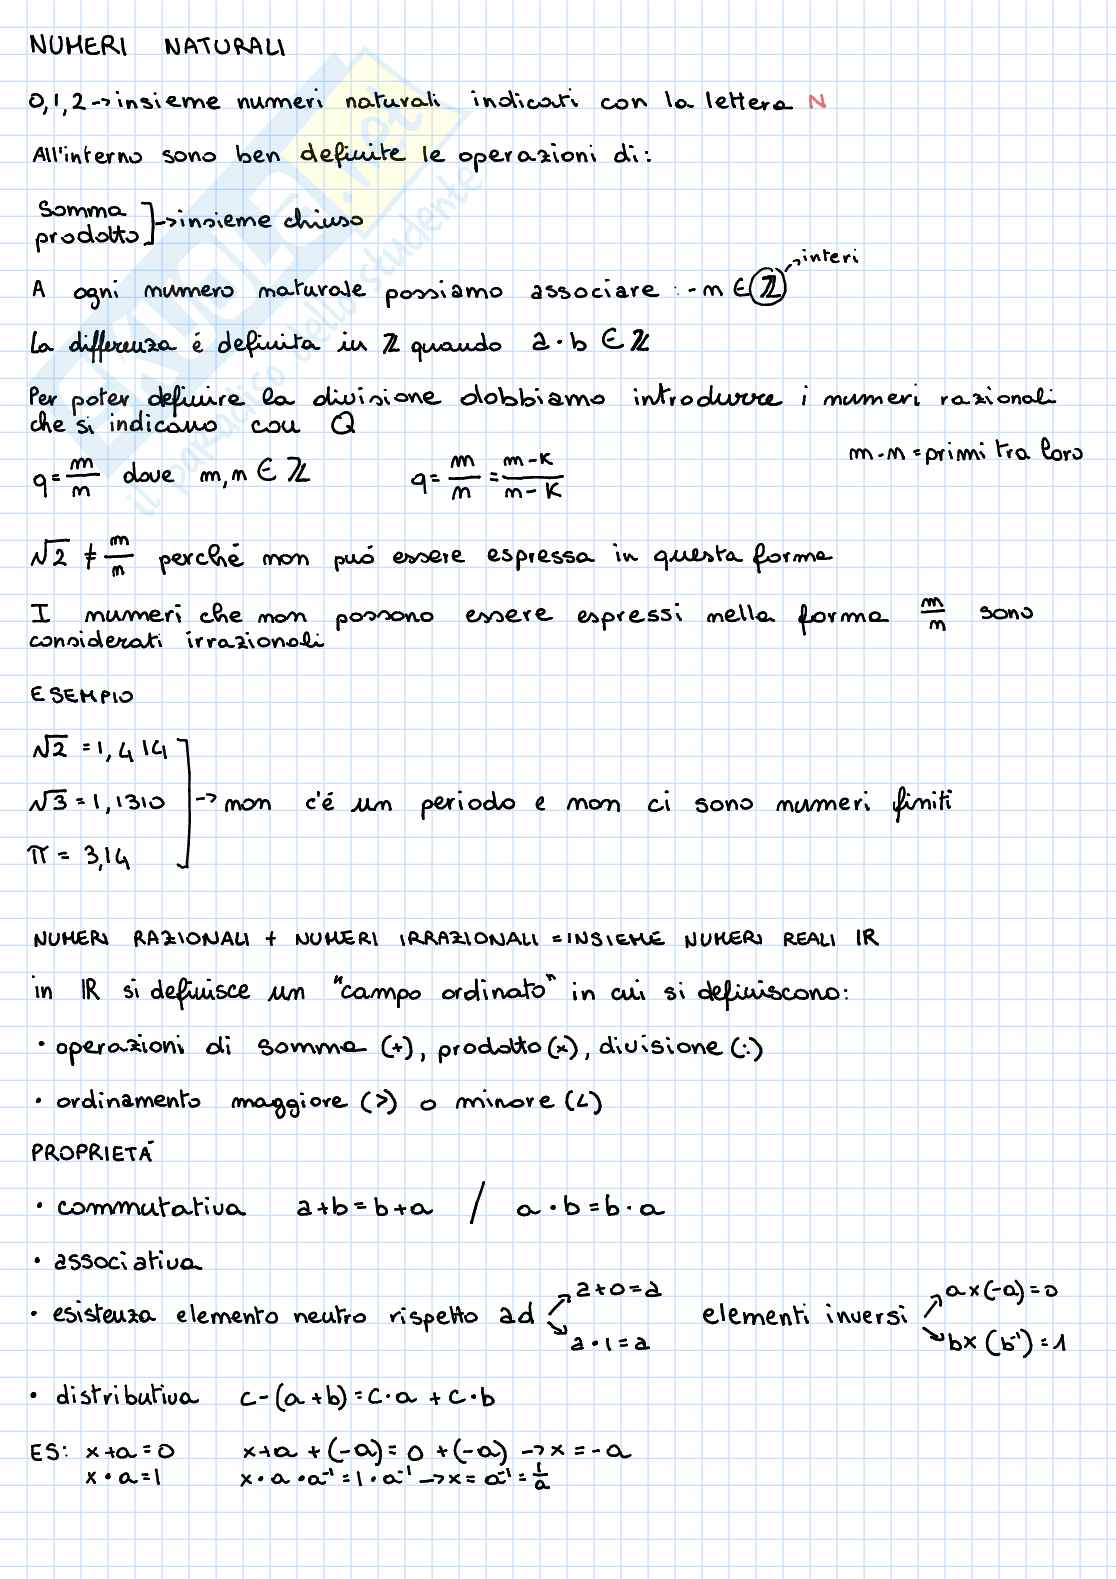 NUMERI NATURALI
0,1,2 → insieme numeri naturali indicati con la lettera N
All'interno sono ben definite le operazioni di:
somma
prodotto ] → insieme chiuso
interi
A ogni numero naturale possiamo associare : -n ∈ ℤ
La differenza é definita in ℤ quando a·b ∈ ℤ
Per poter definire la divisione dobbiamo introdurre i numeri razionali
che si indicano con Q
m-n = primi tra loro
q = m/n dove m,n ∈ ℤ q = m/n = m-K/n-K
√2 ≠ m/n perché non puó essere espressa in questa forma
I numeri che non possono essere espressi nella forma m/n sono
considerati irrazionali
ESEMPIO
√2 = 1,414
√3 = 1,1310 → non c'é un periodo e non ci sono numeri finiti
π = 3,14
NUMERI RAZIONALI + NUMERI IRRAZIONALI = INSIEME NUMERI REALI IR
in IR si definisce un "campo ordinato" in cui si definiscono:
• operazioni di somma (+), prodotto (x), divisione (:)
• ordinamento maggiore (>) o minore (<)
PROPRIETÁ
• commutativa a+b=b+a / a·b=b·a
• associativa
• esistenza elemento neutro rispetto ad a+0=a elementi inversi a×(-a)=0
a·1=a b×(b⁻¹)=1
• distributiva c-(a+b)=c·a+c·b
ES: x+a=0 x+a+(-a)=0+(-a) → x=-a
x·a=1 x·a·a⁻¹=1·a⁻¹ → x=a⁻¹=1/a
skuola.net
il paradiso dello studente